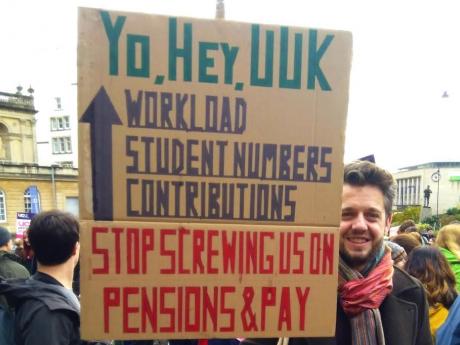 Yo, Hey, UUK
WORKLOAD
STUDENT NUMBERS
CONTRIBUTIONS
STOP SCREWING US ON
PENSIONS & PAY